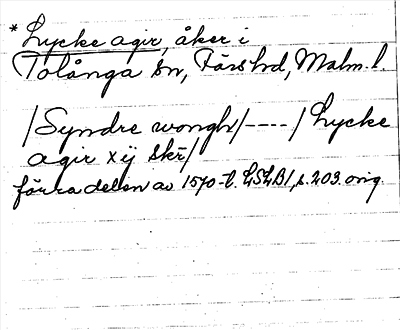 * Lycke agir, åker i
Tolånga sn, Färs hd, Malm. l.
/Syndre wongh/----/Lycke
agir xij skr/
förra delen av 1570-t. LSLB1, s. 203. orig.